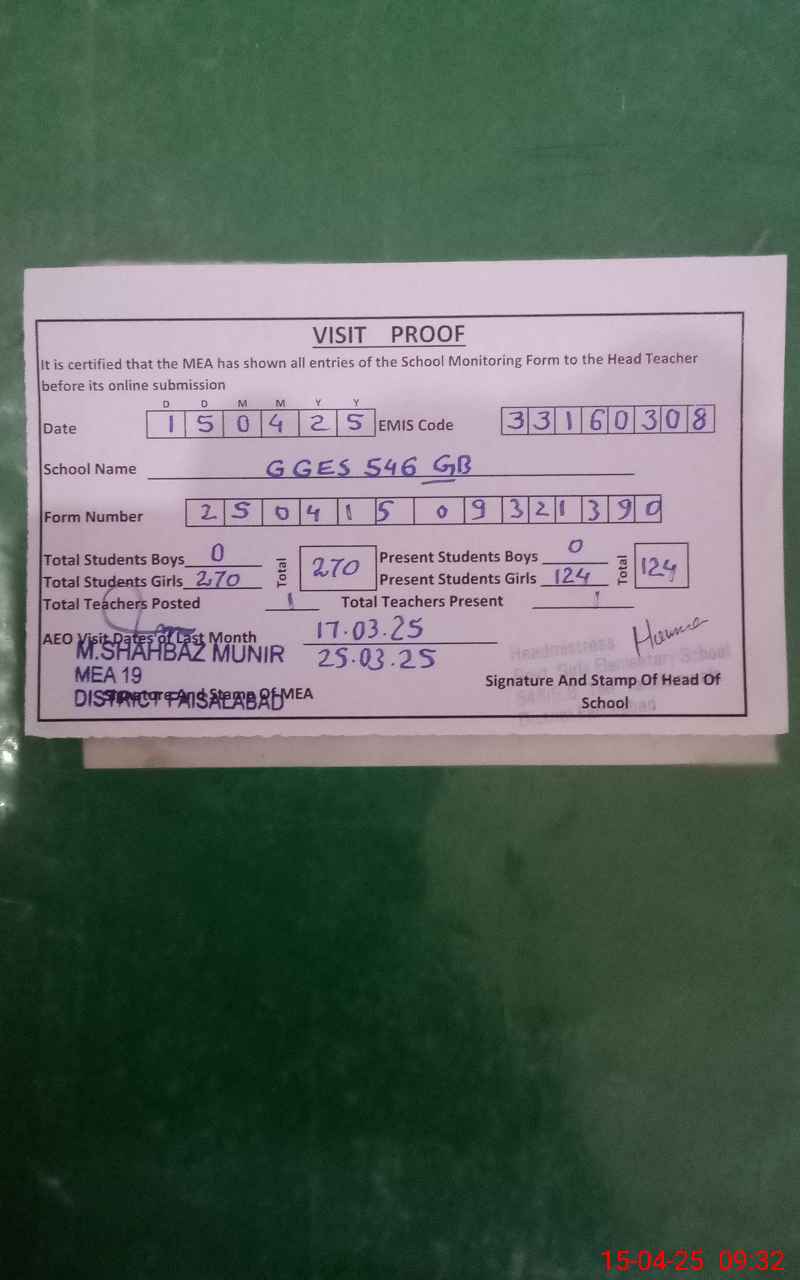 VISIT PROOF
It is certified that the MEA has shown all entries of the School Monitoring Form to the Head Teacher
before its online submission
D D M M Y Y
Date 1 5 0 4 2 5 EMIS Code 3 3 1 6 0 3 0 8
School Name GGES 546 GB
Form Number 2 5 0 4 1 5 0 9 3 2 1 3 9 0
Total Students Boys 0 Total 270 Present Students Boys 0 Total 124
Total Students Girls 270 Present Students Girls 124
Total Teachers Posted 1 Total Teachers Present 1
AEO Visit Dates of Last Month 17.03.25
25.03.25
M.SHAHBAZ MUNIR
MEA 19
DISTRICT FAISALABAD
Signature And Stamp Of MEA
Headmistress
Govt. Girls Elementary School
Signature And Stamp Of Head Of
School
15-04-25 09:32